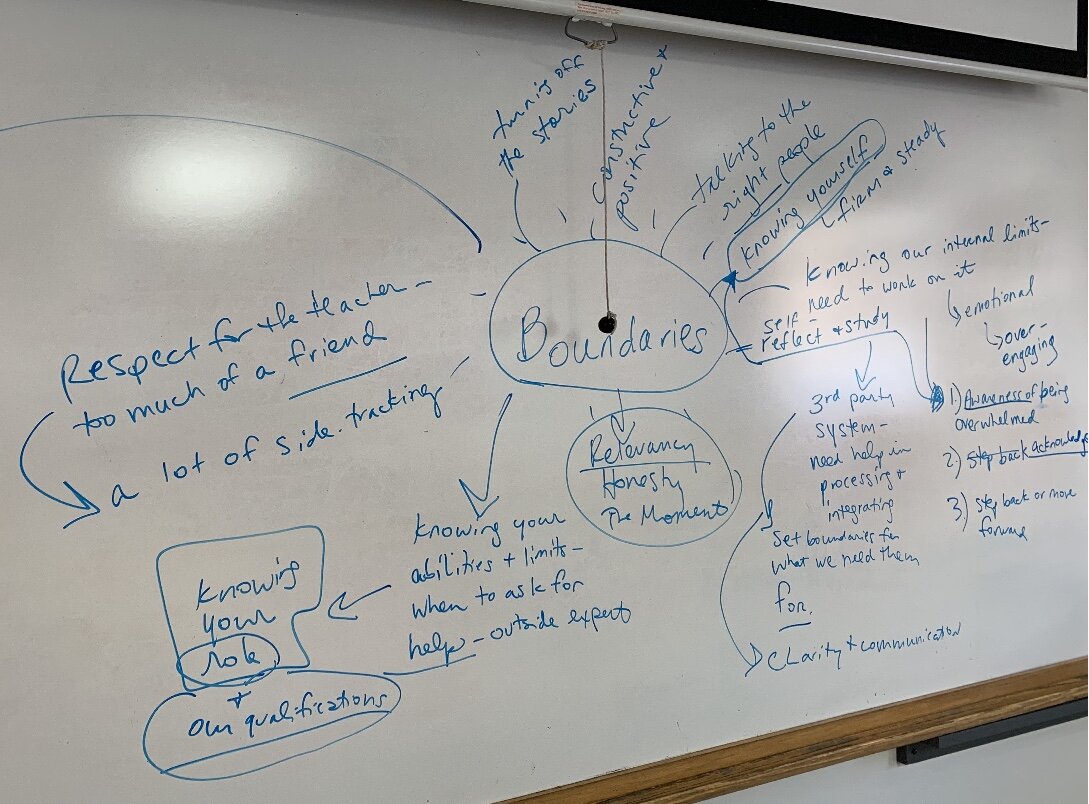 tuning off
the stories
constructive +
positive
talking to the
right people
knowing yourself
firm & steady
Boundaries
knowing our internal limits-
need to work on it
emotional
over-
engaging
self-
reflect & study
1.) Awareness of being
overwhelmed
2.) Step back acknowledge
3.) Step back or move
forward
3rd party
system-
need help in
processing +
integrating
Set boundaries for
what we need them
for.
Clarity + communication
Relevancy
Honesty
The Moment
Respect for the teacher-
too much of a friend
a lot of side-tracking
knowing your
abilities + limits-
when to ask for
help - outside expert
knowing
your
role
+
our qualifications